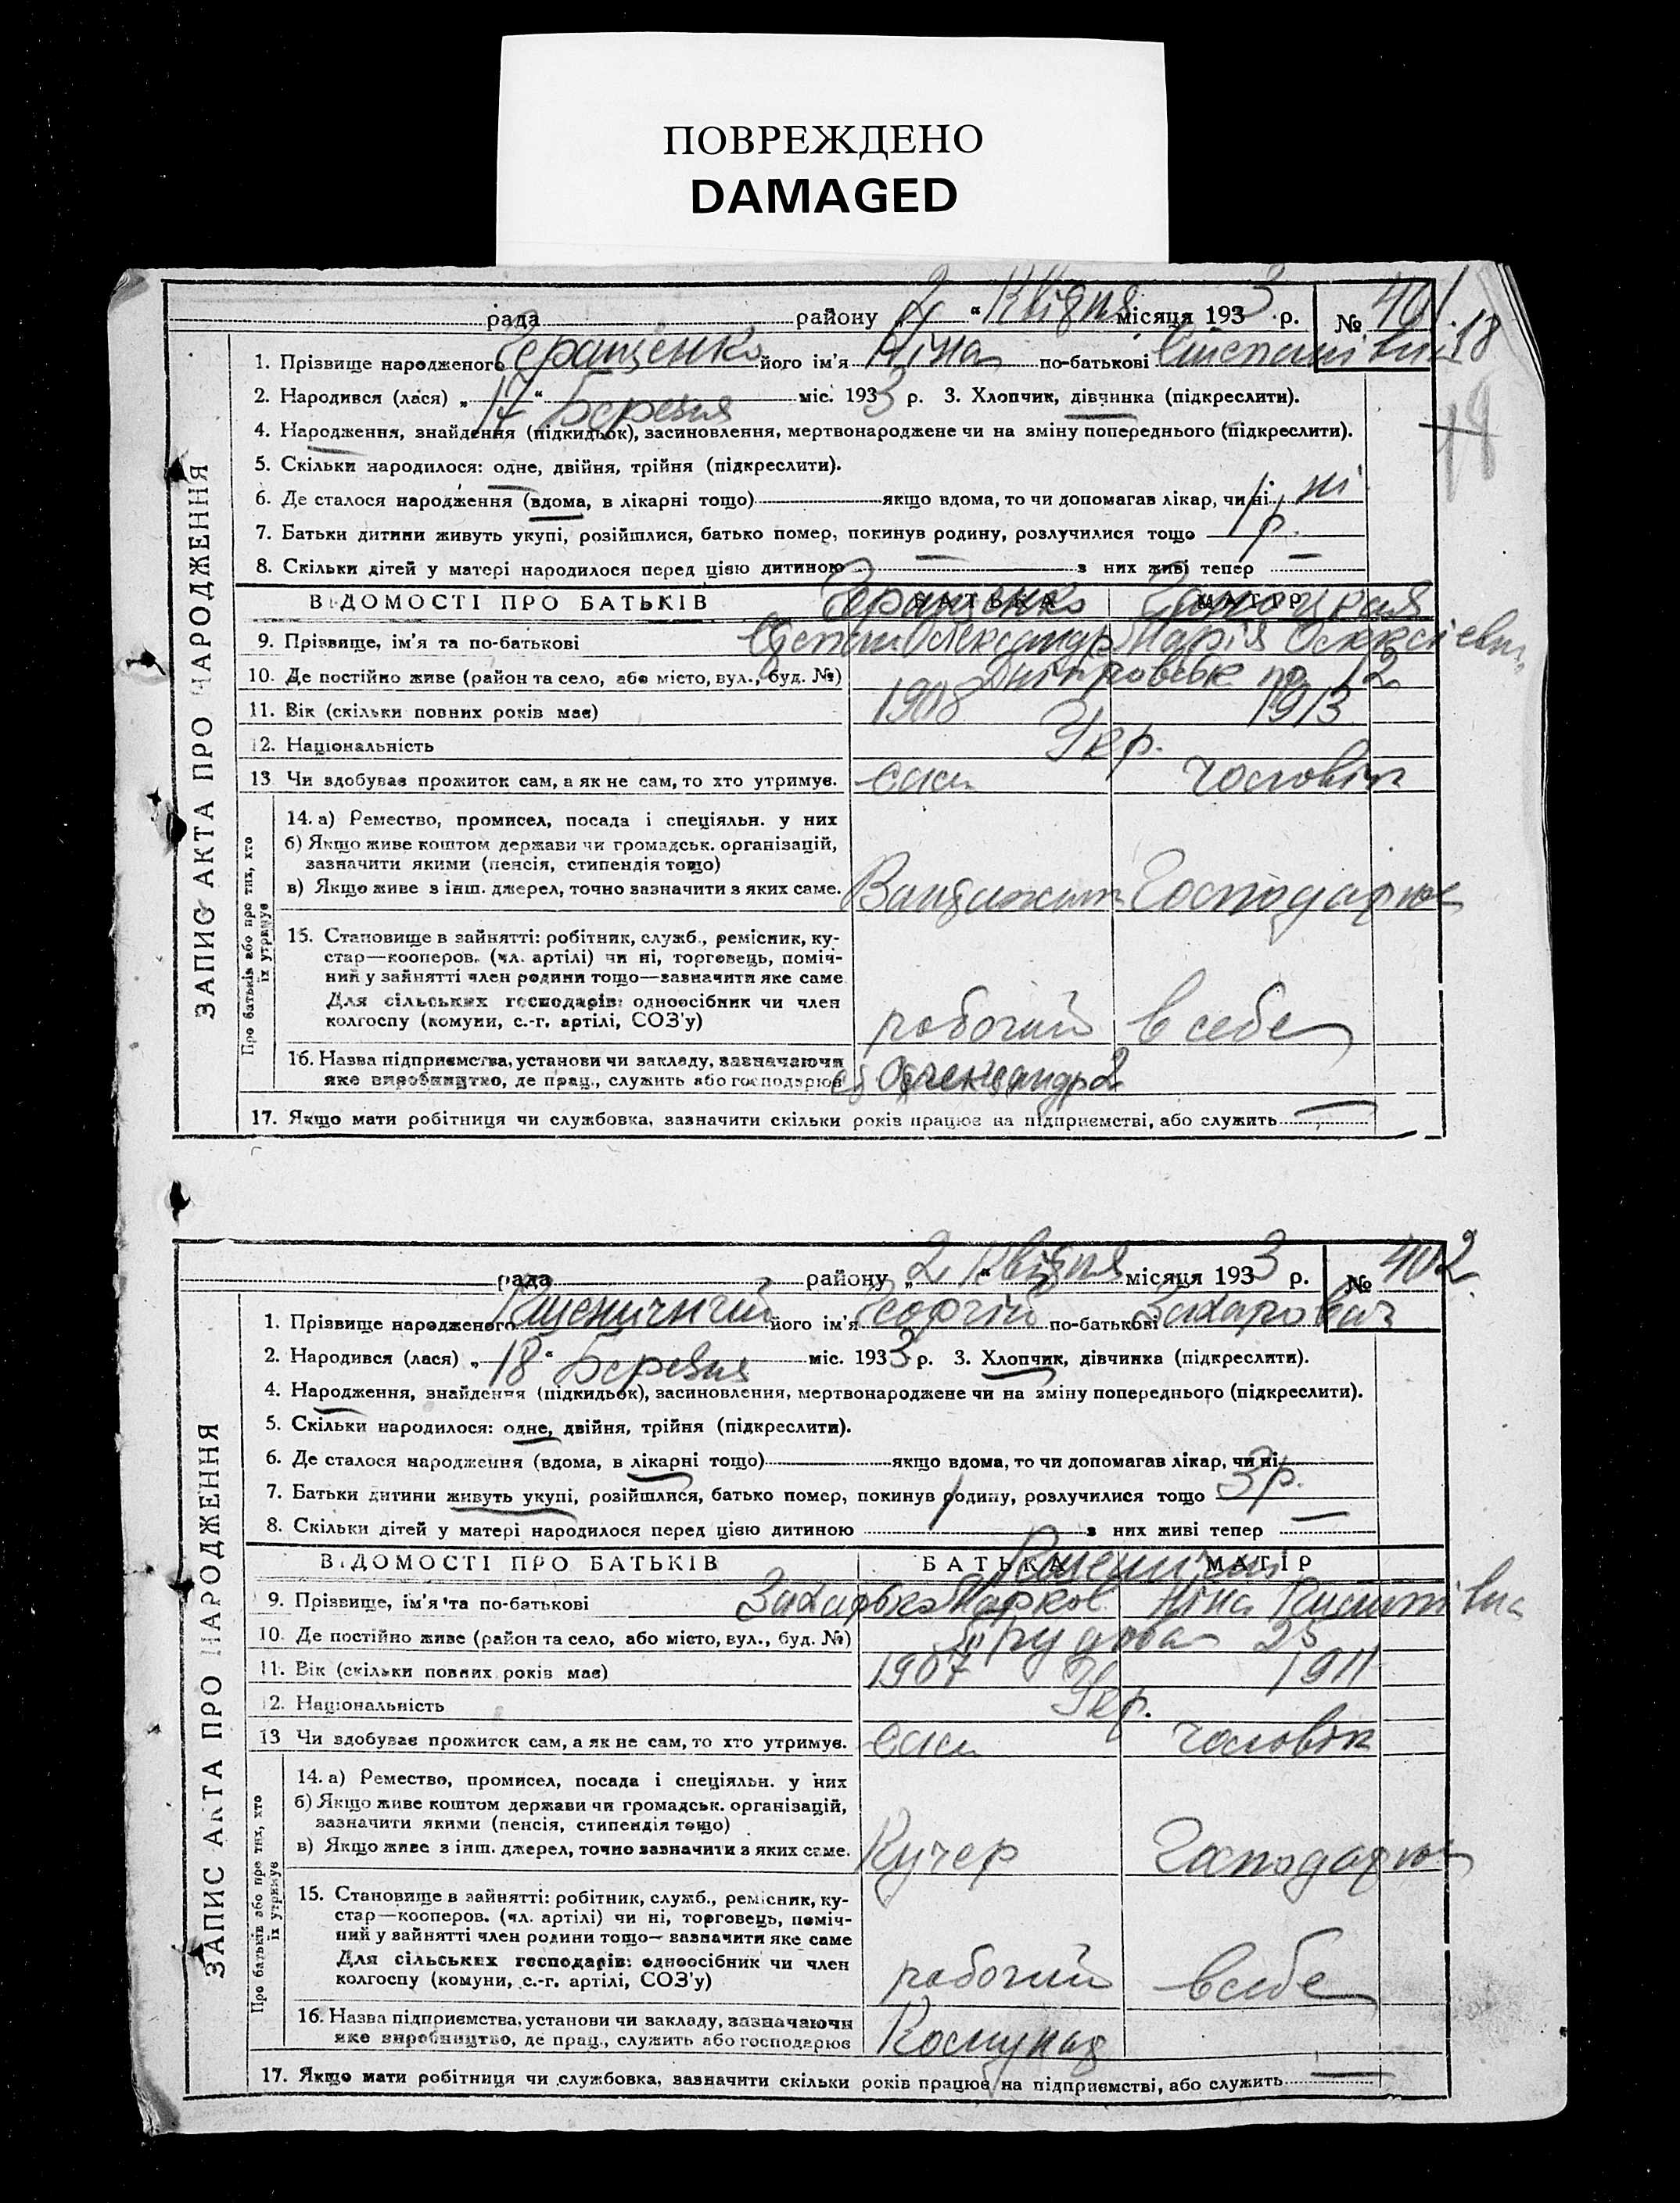 ПОВРЕЖДЕНО
DAMAGED
рада району „2“ Квітня місяця 1933 р. № 401
1. Прізвище народженого Геращенко його ім'я Ніна по-батькові Степанівна 18
2. Народився (лася) „17“ Березня міс. 1933 р. 3. Хлопчик, дівчинка (підкреслити).
4. Народження, знайдення (підкидьок), засиновлення, мертвонароджене чи на зміну попереднього (підкреслити).
5. Скільки народилося: одне, двійня, трійня (підкреслити).
6. Де сталося народження (вдома, в лікарні тощо) якщо вдома, то чи допомагав лікар, чи ні ні
7. Батьки дитини живуть укупі, розійшлися, батько помер, покинув родину, розлучилися тощо 1 р.
8. Скільки дітей у матері народилося перед цією дитиною — з них живі тепер —
ВІДОМОСТІ ПРО БАТЬКІВ БАТЬКА МАТІР
Геращенко
9. Прізвище, ім'я та по-батькові Степан Олександр Марія Олексіевна
10. Де постійно живе (район та село, або місто, вул., буд. №) 12
11. Вік (скільки повних років має) 1908 1913
12. Національність Укр.
13 Чи здобуває прожиток сам, а як не сам, то хто утримує. сам чоловік
Про батьків або про тих, хто їх утримує
14. а) Ремество, промисел, посада і спеціяльн. у них
б) Якщо живе коштом держави чи громадськ. організацій,
зазначити якими (пенсія, стипендія тощо)
в) Якщо живе з інш. джерел, точно зазначити з яких саме. Господарює
15. Становище в зайнятті: робітник, служб., ремісник, ку-
стар—кооперов. (чл. артілі) чи ні, торговець, поміч-
ний у зайнятті член родини тощо—зазначити яке саме
Для сільських господарів: одноосібник чи член
колгоспу (комуни, с.-г. артілі, СОЗ'у) робочий в себе
16. Назва підприємства, установи чи закладу, зазначаючи
яке виробництво, де прац., служить або господарює
17. Якщо мати робітниця чи службовка, зазначити скільки років працює на підприємстві, або служить —
ЗАПИС АКТА ПРО НАРОДЖЕННЯ
рада району „2“ Квітня місяця 1933 р. № 402
1. Прізвище народженого Пшеничний його ім'я Георгій по-батькові Захарович
2. Народився (лася) „18“ Березня міс. 1933 р. 3. Хлопчик, дівчинка (підкреслити).
4. Народження, знайдення (підкидьок), засиновлення, мертвонароджене чи на зміну попереднього (підкреслити).
5. Скільки народилося: одне, двійня, трійня (підкреслити).
6. Де сталося народження (вдома, в лікарні тощо) якщо вдома, то чи допомагав лікар, чи ні
7. Батьки дитини живуть укупі, розійшлися, батько помер, покинув родину, розлучилися тощо 3 р.
8. Скільки дітей у матері народилося перед цією дитиною 1 з них живі тепер —
ВІДОМОСТІ ПРО БАТЬКІВ БАТЬКА МАТІР
9. Прізвище, ім'я та по-батькові Марков Ніна
10. Де постійно живе (район та село, або місто, вул., буд. №) Трудова 25
11. Вік (скільки повних років має) 1907 1911
12. Національність Укр.
13 Чи здобуває прожиток сам, а як не сам, то хто утримує. сам чоловік
Про батьків або про тих, хто їх утримує
14. а) Ремество, промисел, посада і спеціяльн. у них
б) Якщо живе коштом держави чи громадськ. організацій,
зазначити якими (пенсія, стипендія тощо)
в) Якщо живе з інш. джерел, точно зазначити з яких саме. Кучер Господарює
15. Становище в зайнятті: робітник, служб., ремісник, ку-
стар—кооперов. (чл. артілі) чи ні, торговець, поміч-
ний у зайнятті член родини тощо—зазначити яке саме
Для сільських господарів: одноосібник чи член
колгоспу (комуни, с.-г. артілі, СОЗ'у) робочий в себе
16. Назва підприємства, установи чи закладу, зазначаючи
яке виробництво, де прац., служить або господарює
17. Якщо мати робітниця чи службовка, зазначити скільки років працює на підприємстві, або служить —
ЗАПИС АКТА ПРО НАРОДЖЕННЯ